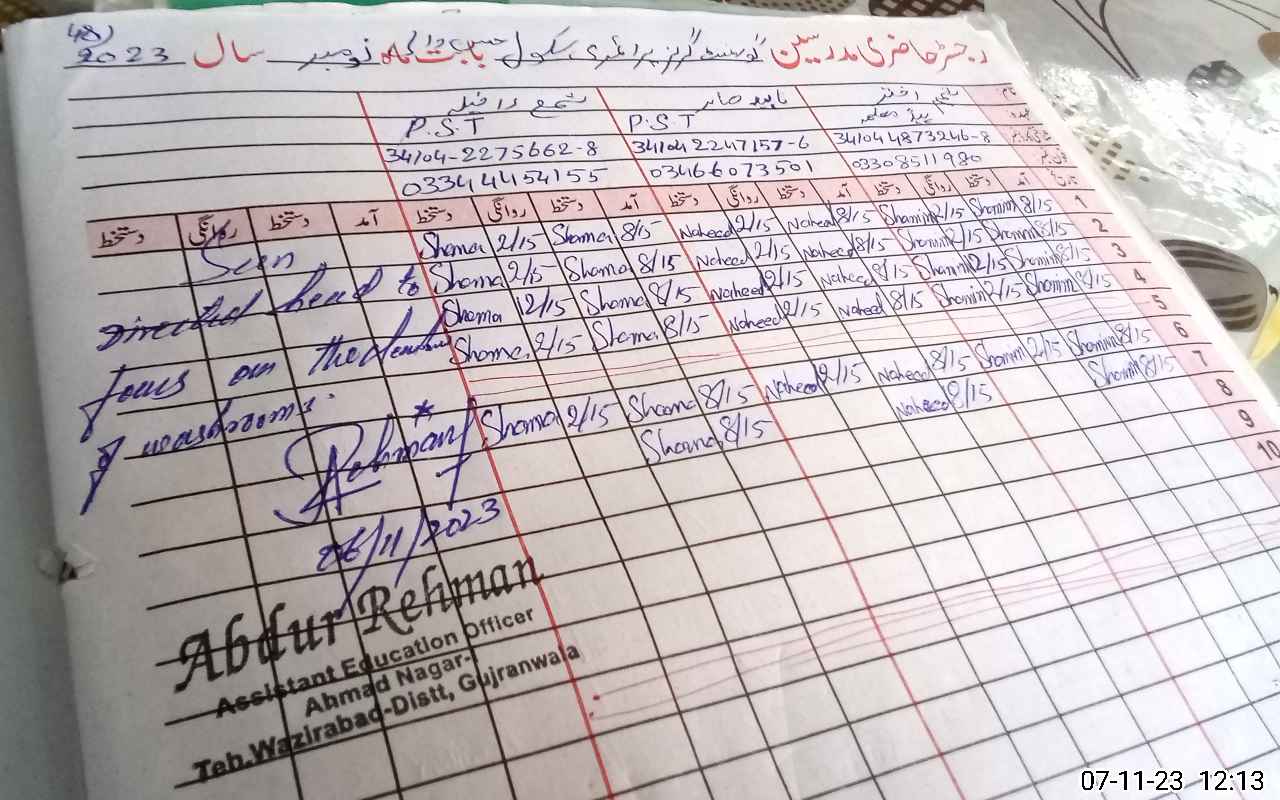 48)
رجسٹر حاضری مدرسین گورنمنٹ گرلز پرائمری سکول بابت ماہ نومبر سال 2023
نام شمیم اختر ناہید صابر شمع
عہدہ P.S.T P.S.T
341044873246-8 34104 2247157-6 34104-2275662-8
03308511980 03466073501 03344454155
تاریخ آمد دستخط روانگی دستخط آمد دستخط روانگی دستخط آمد دستخط روانگی دستخط آمد دستخط روانگی دستخط
1 8/15 Shamim 2/15 Shamim 8/15 Naheed 2/15 Naheed 8/15 Shama 2/15 Shama
2 8/15 Shamim 2/15 Shamim 8/15 Naheed 2/15 Naheed 8/15 Shama 2/15 Shama
3 8/15 Shamim 2/15 Shamim 8/15 Naheed 2/15 Naheed 8/15 Shama 2/15 Shama
4 8/15 Shamim 2/15 Shamim 8/15 Naheed 2/15 Naheed 8/15 Shama 2/15 Shama
5
6 8/15 Shamim 2/15 Shamim 8/15 Naheed 2/15 Naheed 8/15 Shama 2/15 Shama
7 8/15 Shamim 8/15 Naheed 8/15 Shama
8
9
10
Seen
Directed head to
focus on the
of washrooms.
Rehman
06/11/2023
Abdur Rehman
Assistant Education Officer
Ahmad Nagar-I
Teh.Wazirabad-Distt, Gujranwala
07-11-23 12:13